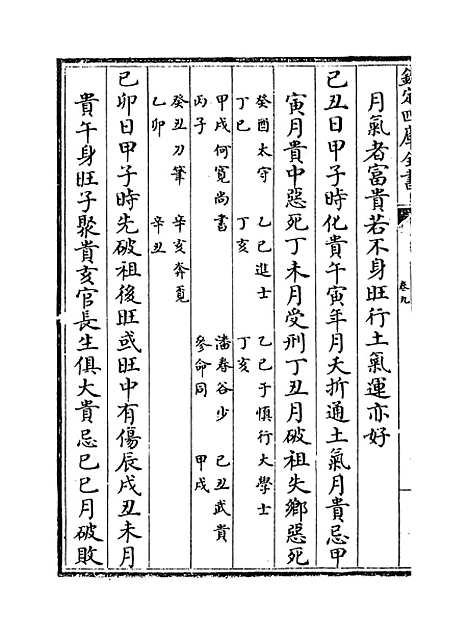 欽定四庫全書
卷九
月氣者富貴若不身旺行土氣運亦好
己丑日甲子時化貴午寅年月夭折通土氣月貴忌甲
寅月貴中惡死丁未月受刑丁丑月破祖失鄉惡死
癸酉太守　乙巳進士　乙巳于慎行大學士
丁巳　丁亥　丁亥
甲戌何寬尚書　潘春谷少　己丑武貴
丙子　參命同　甲戌
癸丑刀筆　辛亥奔覓
乙卯　辛丑
己卯日甲子時先破祖後旺或旺中有傷辰戌丑未月
貴午身旺子聚貴亥官長生俱大貴忌己巳月破敗